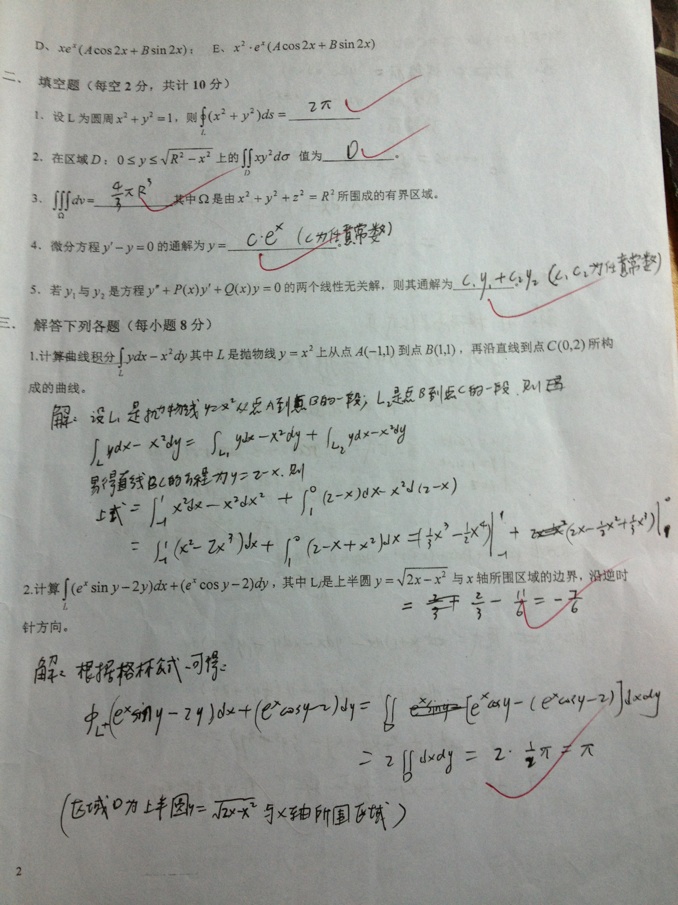 D、xe^x(Acos2x+Bsin2x)； E、x²·e^x(Acos2x+Bsin2x)
二、 填空题（每空 2 分，共计 10 分）
1．设 L 为圆周 x²+y²=1，则∮_L(x²+y²)ds= 2π
2．在区域 D：0≤y≤√(R²−x²) 上的∬_D xy²dσ 值为 0 。
3．∭_Ω dv= 4/3 πR³ 其中Ω是由 x²+y²+z²=R² 所围成的有界区域。
4．微分方程 y′−y=0 的通解为 y= C·e^x (C为任意常数)
5．若 y₁与 y₂ 是方程 y″+P(x)y′+Q(x)y=0 的两个线性无关解，则其通解为 C₁y₁+C₂y₂ (C₁ C₂为任意常数)
三、 解答下列各题（每小题 8 分）
1.计算曲线积分∫_L ydx−x²dy 其中 L 是抛物线 y=x² 上从点 A(−1,1) 到点 B(1,1)，再沿直线到点 C(0,2) 所构
成的曲线。
解：设L₁是抛物线y=x²从点A到点B的一段；L₂是点B到点C的一段．则
∫_L ydx−x²dy = ∫_L₁ ydx−x²dy + ∫_L₂ ydx−x²dy
易得直线BC的方程为y=2-x．则
上式=∫_{-1}^{1} x²dx−x²dx² + ∫_1^0 (2-x)dx−x²d(2-x)
=∫_{-1}^{1}(x²−2x³)dx+∫_1^0(2-x+x²)dx=(1/3x³−1/2x⁴)|_{-1}^{1} + (2x−1/2x²+1/3x³)|_1^0
2.计算∫_L(e^x sin y−2y)dx+(e^x cos y−2)dy，其中 L 是上半圆 y=√(2x−x²) 与 x 轴所围区域的边界，沿逆时
= 2/3 − 11/6 = −7/6
针方向。
解：根据格林公式可得：
∮_L+(e^x sin y−2y)dx+(e^x cos y−2)dy= ∬_D [e^x cos y−(e^x cos y−2)]dxdy
=2∬_D dxdy = 2·1/2π=π
(区域D为上半圆y=√(2x-x²)与x轴所围区域)
2